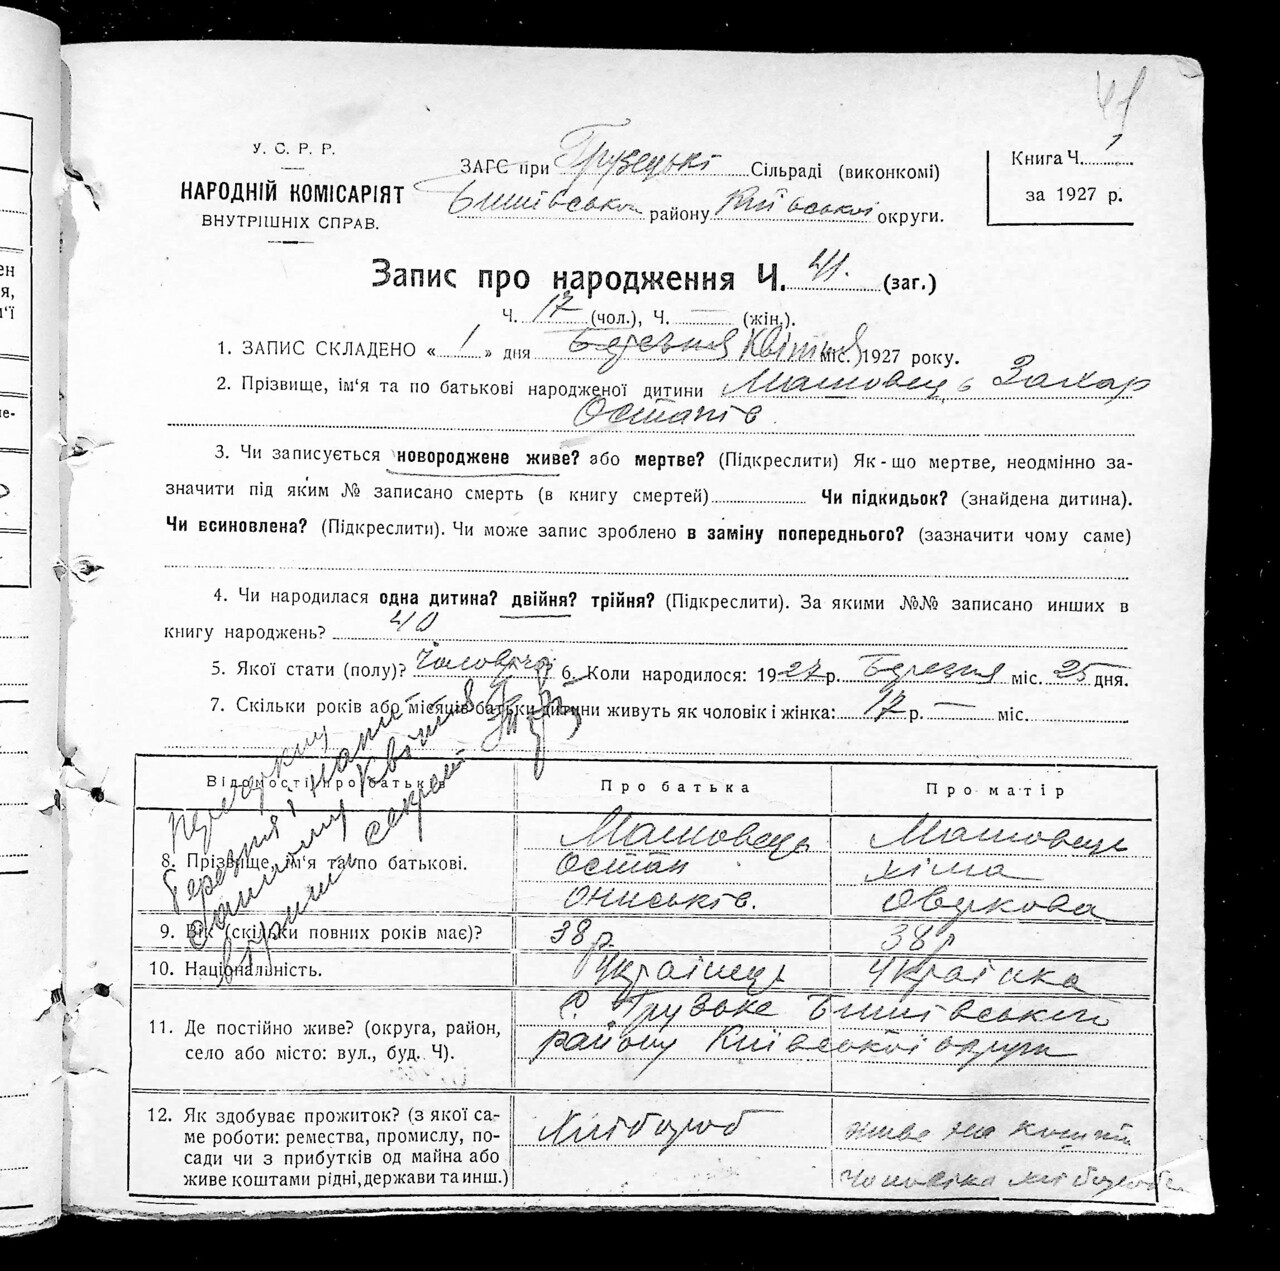 41
У. С. Р. Р.
НАРОДНІЙ КОМІСАРІЯТ
ВНУТРІШНІХ СПРАВ.
ЗАГС при Грузецькі Сільраді (виконкомі)
Бишівськой району Київськоі округи.
Книга Ч. 1
за 1927 р.
Запис про народження Ч. 41. (заг.)
Ч. 17 (чол.), Ч. — (жін.).
1. ЗАПИС СКЛАДЕНО « 1 » дня Березня Квітня міс. 1927 року.
2. Прізвище, ім'я та по батькові народженої дитини Машовець Захар
Остапів.
3. Чи записується новороджене живе? або мертве? (Підкреслити) Як-що мертве, неодмінно за-
значити під яким № записано смерть (в книгу смертей) Чи підкидьок? (знайдена дитина).
Чи всиновлена? (Підкреслити). Чи може запис зроблено в заміну попереднього? (зазначити чому саме)
4. Чи народилася одна дитина? двійня? трійня? (Підкреслити). За якими №№ записано инших в
книгу народжень? 40
5. Якої стати (полу)? Чоловічоі 6. Коли народилося: 1927 р. Березня міс. 25 дня.
7. Скільки років або місяців батьки дитини живуть як чоловік і жінка: 17 р. — міс.
Відомості про батьків Про батька Про матір
8. Прізвище, ім'я та по батькові. Машовець Остап Ониськів. Машовець Хіма
9. Вік (скільки повних років має)? 38 р. 38 р
10. Національність. Українець Українка
11. Де постійно живе? (округа, район, село або місто: вул., буд. Ч). с. Грузьке Бишівського
району Київськоі округи
12. Як здобуває прожиток? (з якої са-
ме роботи: ремества, промислу, по-
сади чи з прибутків од майна або
живе коштами рідні, держави та инш.)
Хлібороб
живе на кошти
чоловіка хлібороба